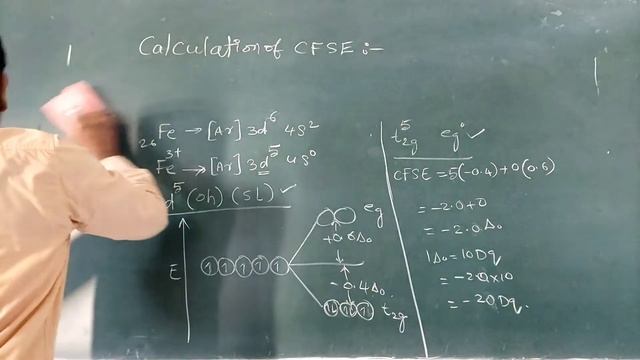 Calculation of CFSE :-
₂₆Fe → [Ar] 3d⁶ 4s²
Fe³⁺ → [Ar] 3d⁵ 4s⁰
d⁵ (oh) (sl) ✓
eg
+0.6Δ₀
E
1 1 1 1 1
-0.4Δ₀.
t₂g
t₂g⁵ eg⁰ ✓
CFSE = 5(-0.4) + 0(0.6)
= -2.0+0
= -2.0Δ₀
1Δ₀ = 10Dq
= -2.0×10
= -20Dq.